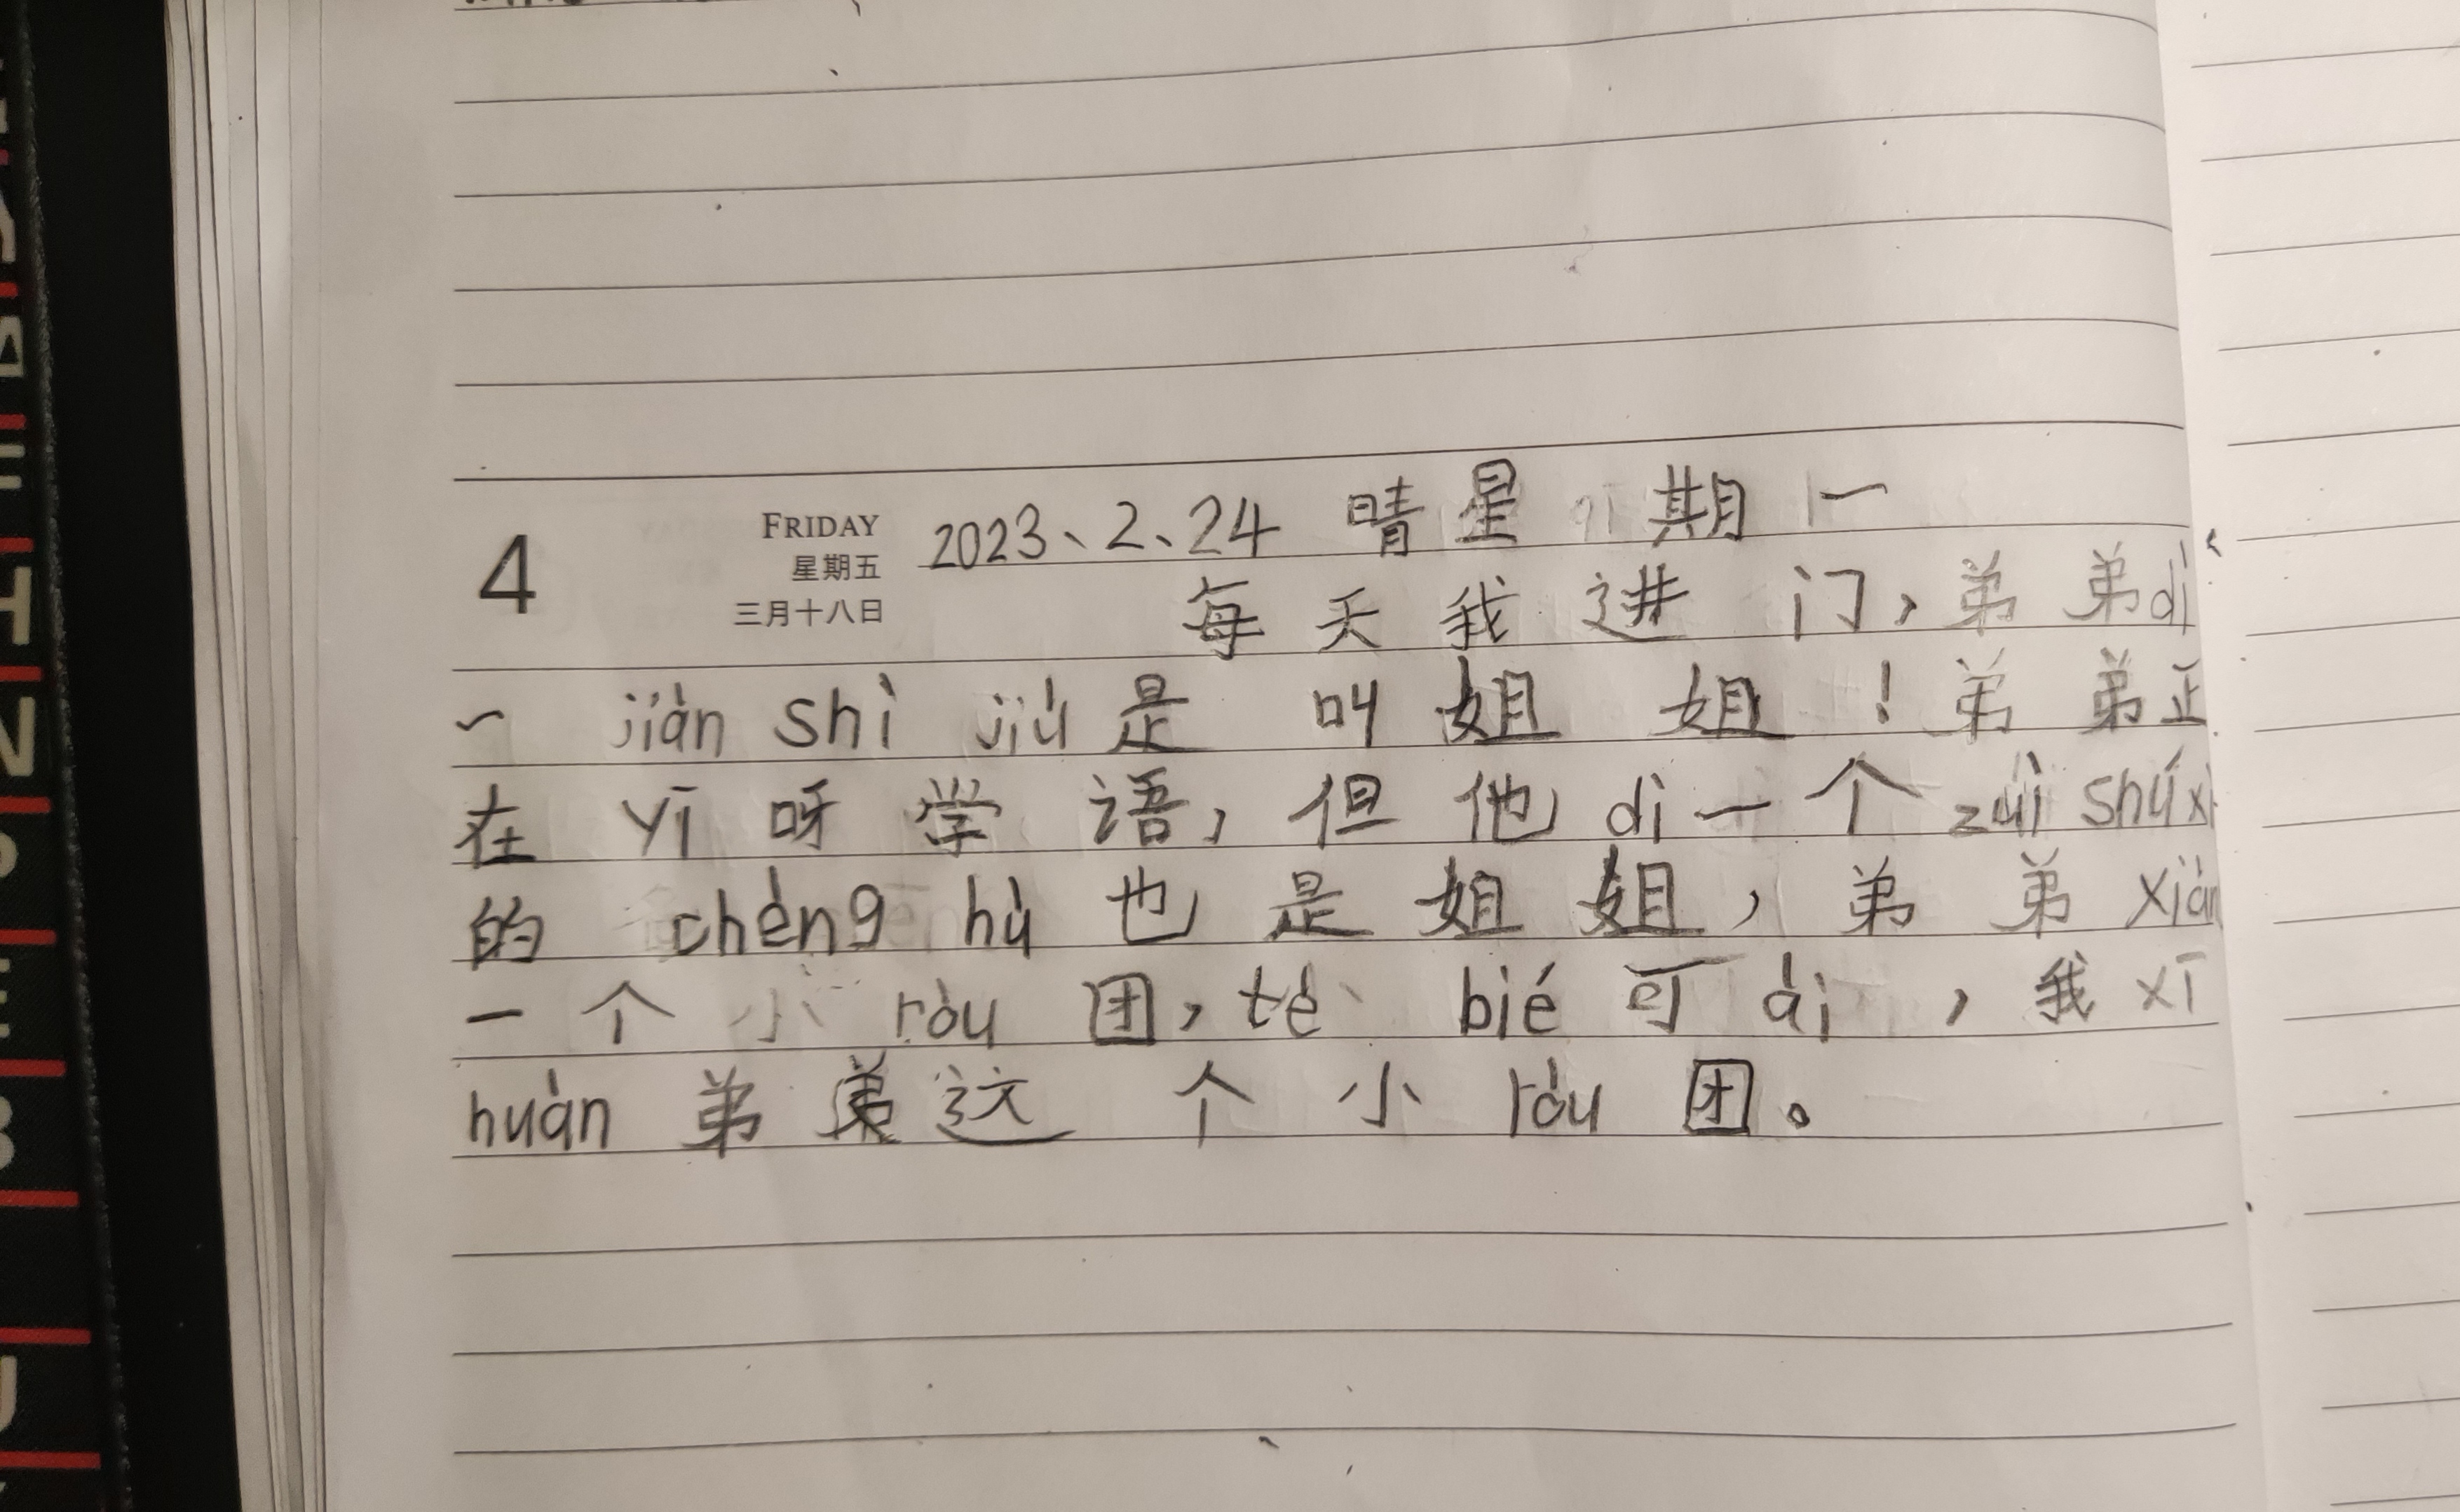 4
FRIDAY
星期五
三月十八日
2023、2、24 晴 星期一
每天我进门，弟弟dì
一 jiàn shì jiù 是 叫 姐 姐！弟弟正
在 yī 呀 学 语，但 他 dì 一 个 zuì shúxī
的 chēng hù 也 是 姐 姐，弟 弟 xiàn
一 个 小 ròu 团，tè bié 可 ài，我 xǐ
huàn 弟 弟 这 个 小 ròu 团。